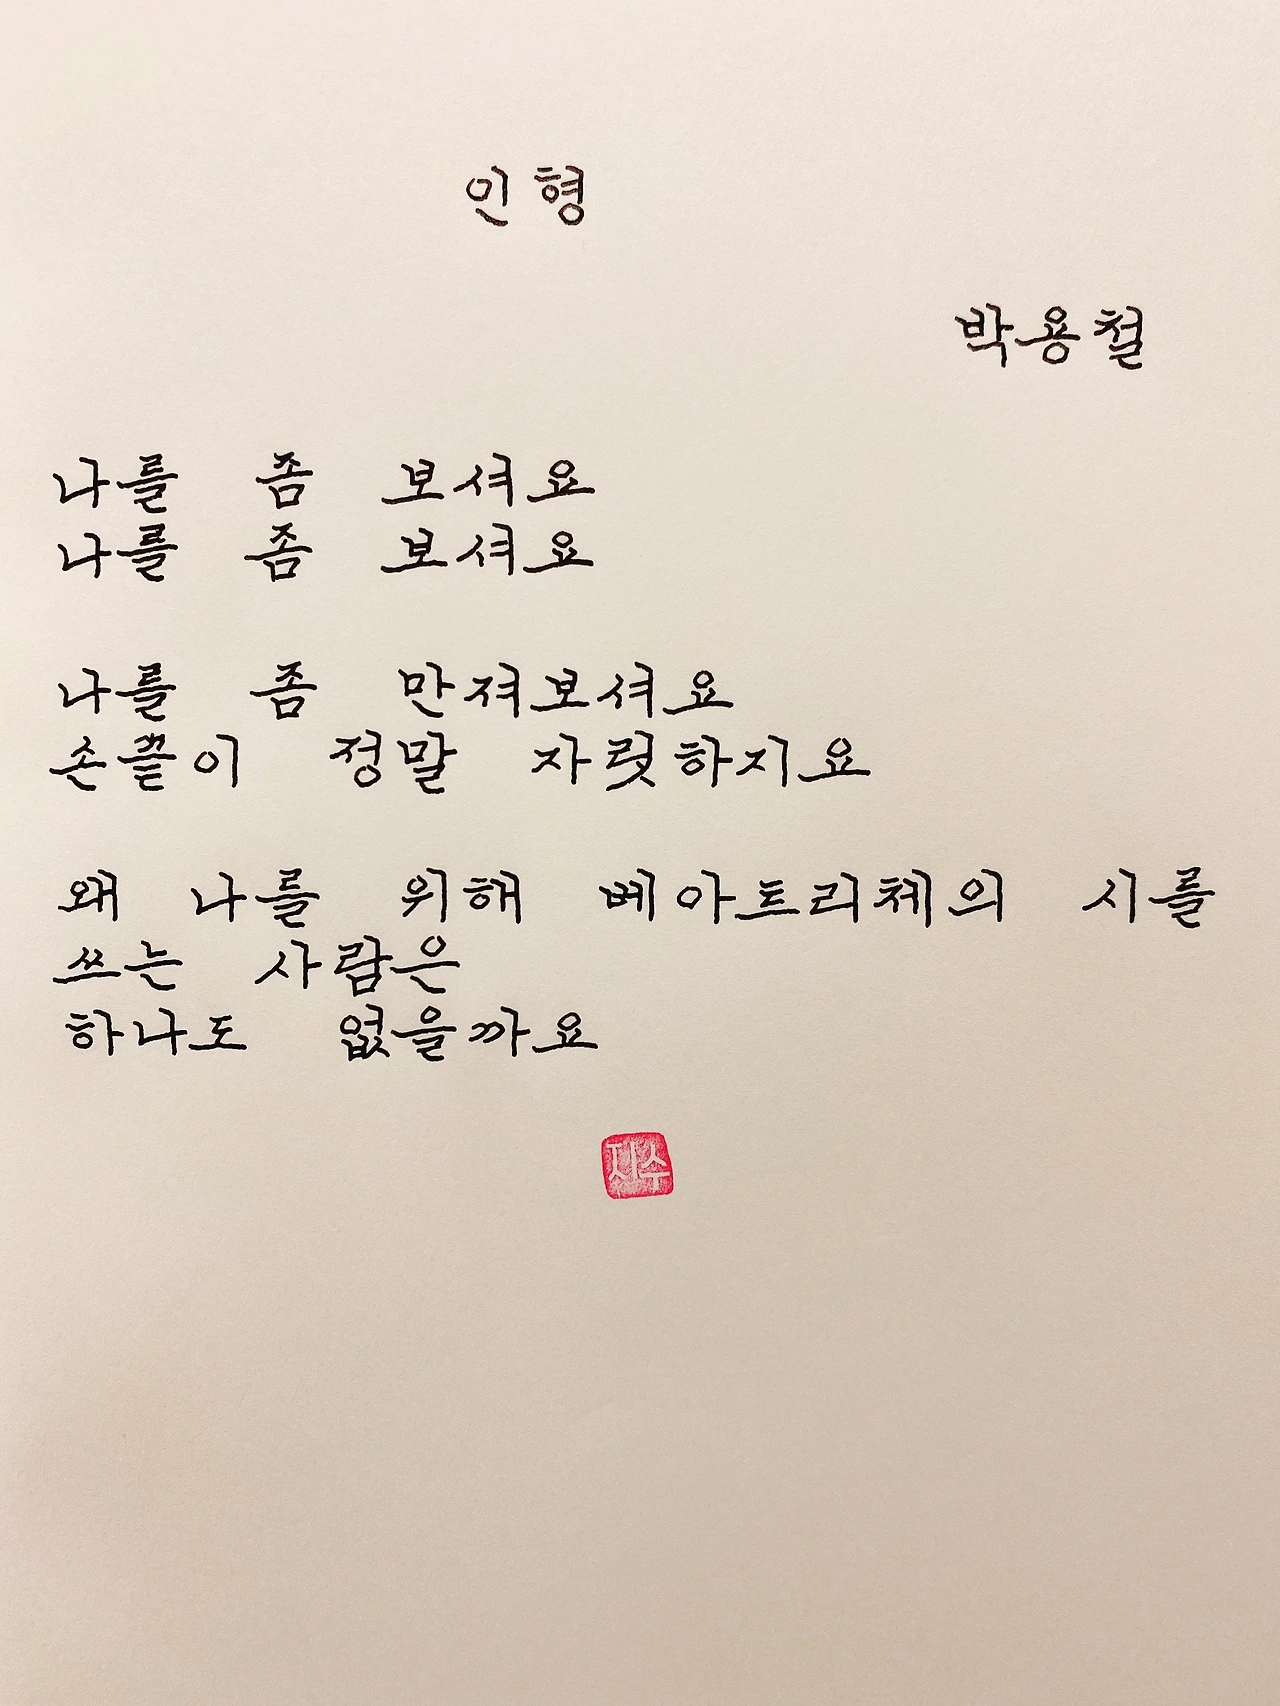 인형
박용철
나를 좀 보셔요
나를 좀 보셔요
나를 좀 만져보셔요
손끝이 정말 자릿하지요
왜 나를 위해 베아트리체의 시를
쓰는 사람은
하나도 없을까요
지수